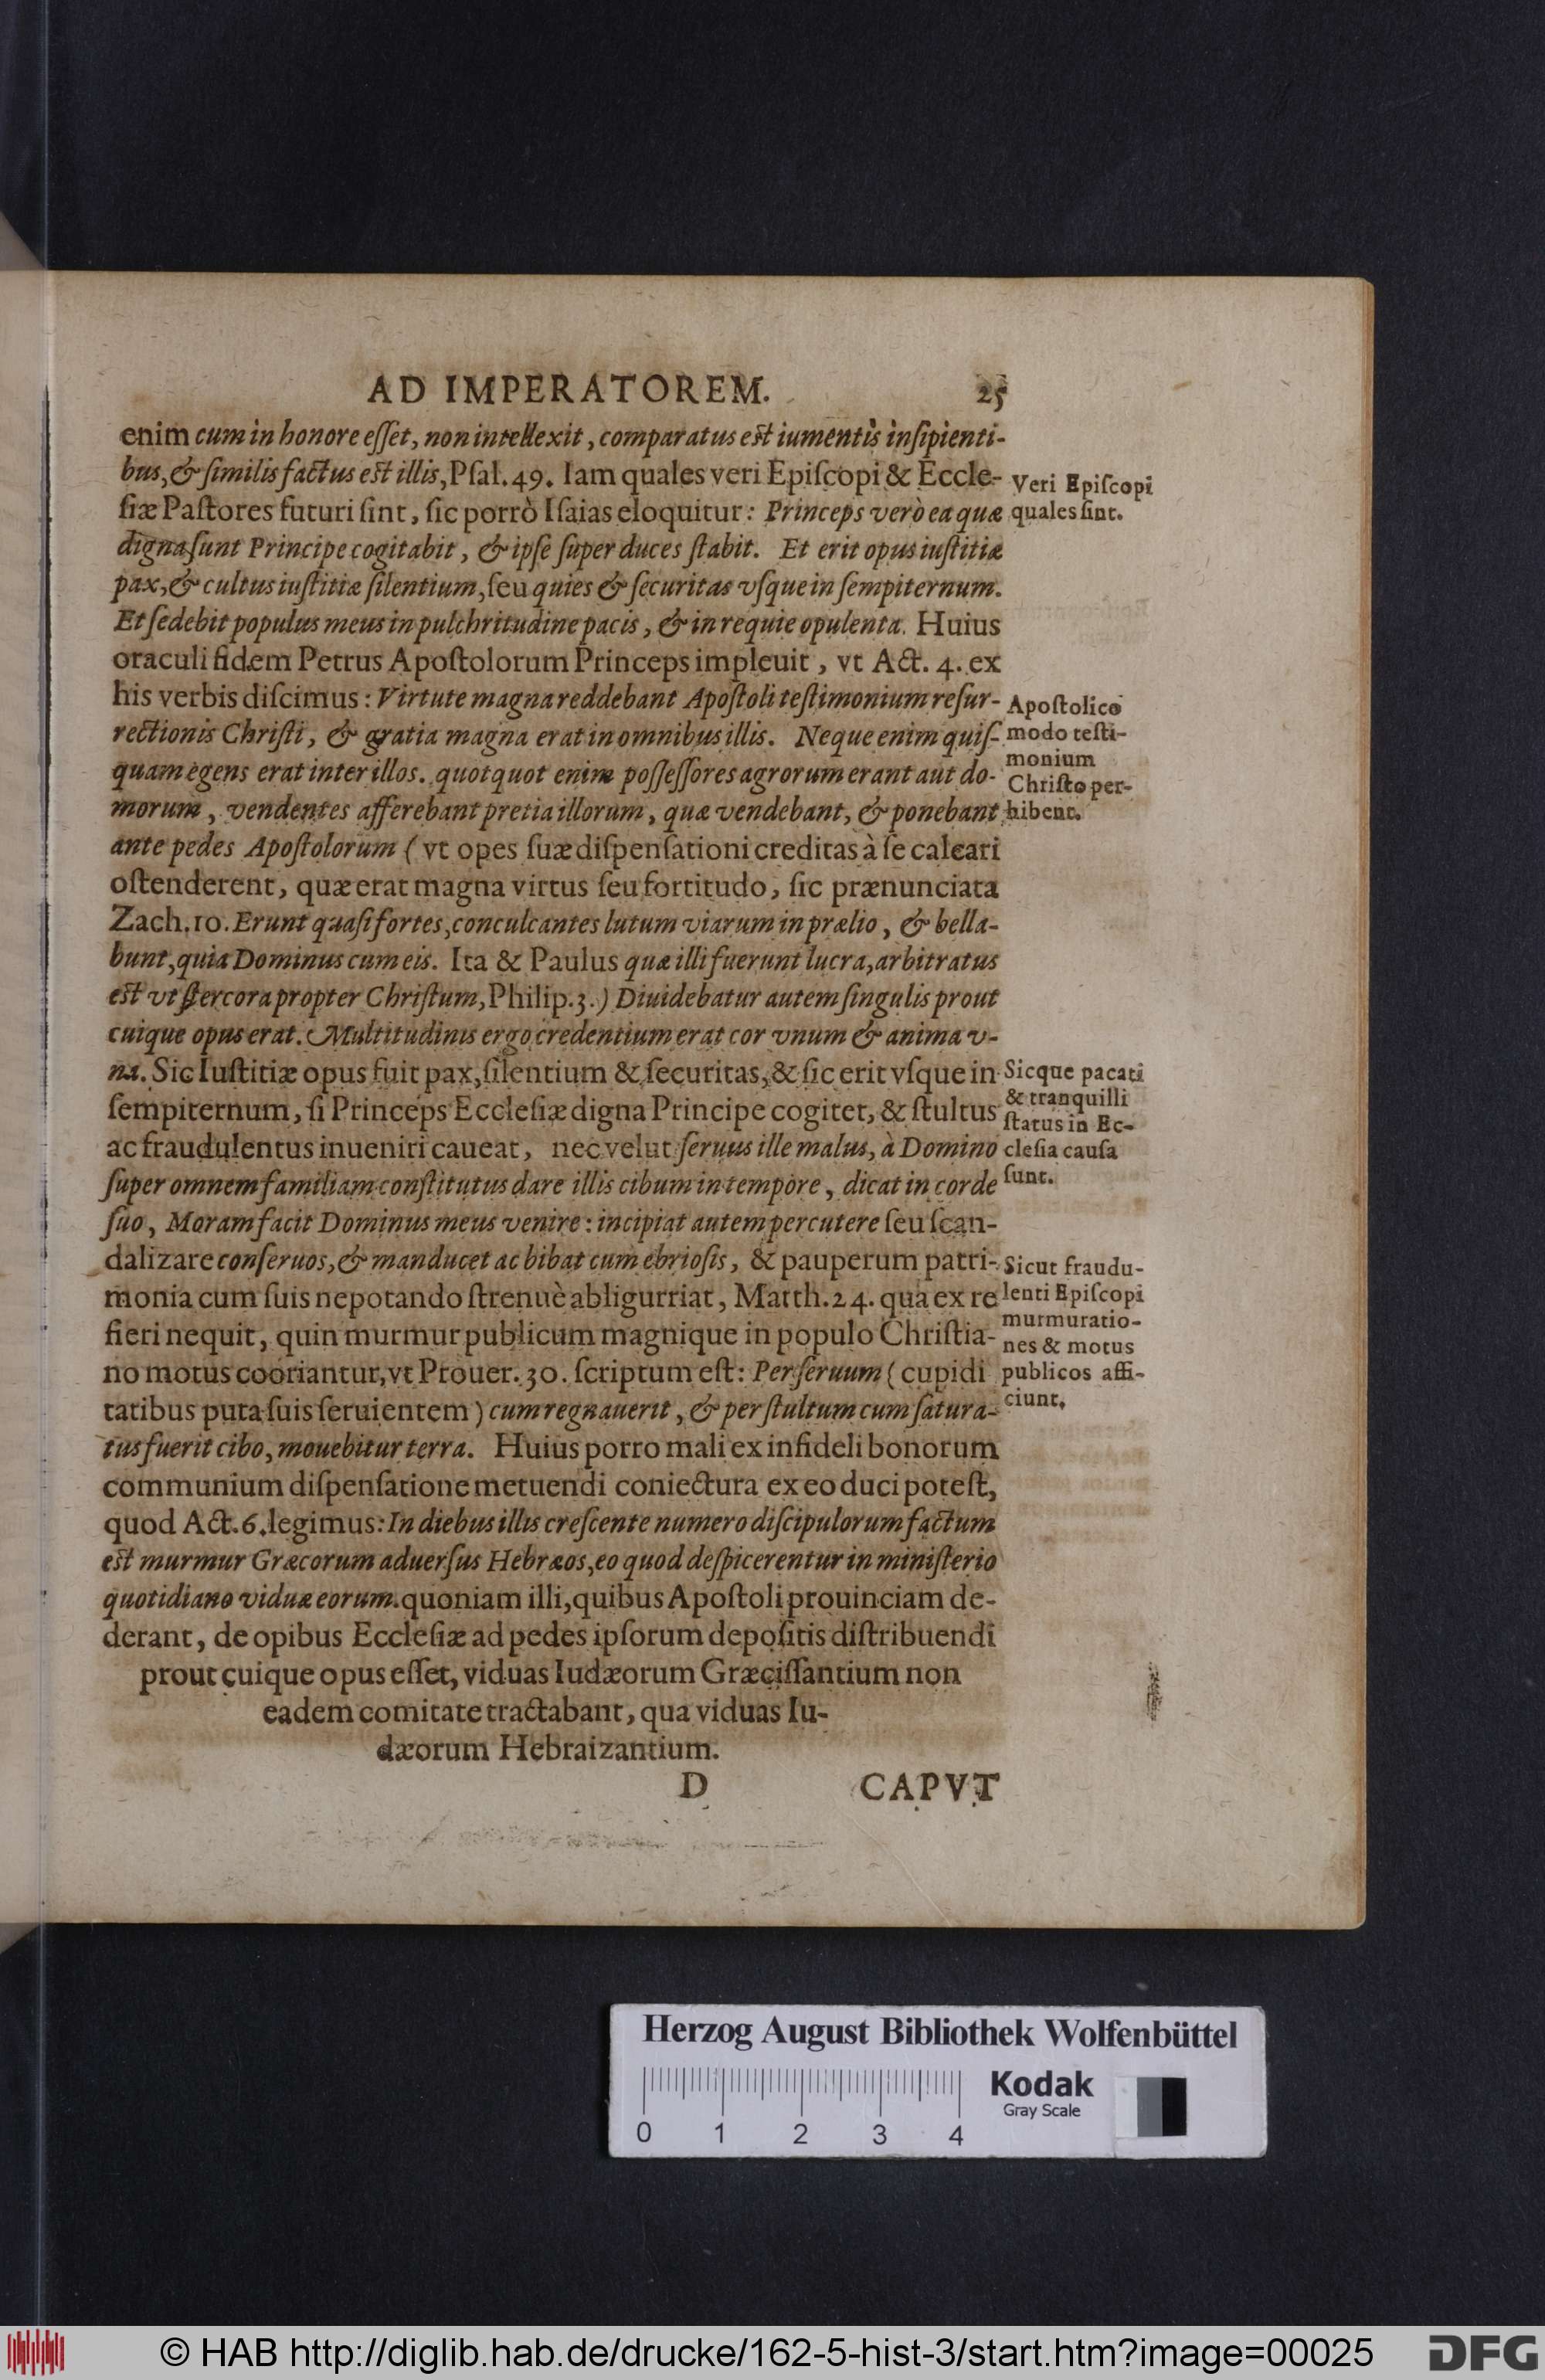 AD IMPERATOREM. 25
enim cum in honore eſſet, non intellexit, comparatus eſt iumentis inſipienti-
bus, & ſimilis factus eſt illis, Pſal. 49. Iam quales veri Epiſcopi & Eccle-
ſiæ Paſtores futuri ſint, ſic porrò Iſaias eloquitur: Princeps verò ea quæ
digna ſunt Principe cogitabit, & ipſe ſuper duces ſtabit. Et erit opus iuſtitiæ
pax, & cultus iuſtitiæ ſilentium, ſeu quies & ſecuritas vſque in ſempiternum.
Et ſedebit populus meus in pulchritudine pacis, & in requie opulenta. Huius
oraculi fidem Petrus Apoſtolorum Princeps impleuit, vt Act. 4. ex
his verbis diſcimus: Virtute magna reddebant Apoſtoli teſtimonium reſur-
rectionis Chriſti, & gratia magna erat in omnibus illis. Neque enim quiſ-
quam egens erat inter illos. quotquot enim poſſeſſores agrorum erant aut do-
morum, vendentes afferebant pretia illorum, quæ vendebant, & ponebant
ante pedes Apoſtolorum (vt opes ſuæ diſpenſationi creditas à ſe calcari
oſtenderent, quæ erat magna virtus ſeu fortitudo, ſic prænunciata
Zach. 10. Erunt quaſi fortes, conculcantes lutum viarum in prælio, & bella-
bunt, quia Dominus cum eis. Ita & Paulus quæ illi fuerunt lucra, arbitratus
eſt vt ſtercora propter Chriſtum, Philip. 3.) Diuidebatur autem ſingulis prout
cuique opus erat. Multitudinis ergo credentium erat cor vnum & anima v-
na. Sic Iuſtitiæ opus fuit pax, ſilentium & ſecuritas, & ſic erit vſque in
ſempiternum, ſi Princeps Eccleſiæ digna Principe cogitet, & ſtultus
ac fraudulentus inueniri caueat, nec velut ſeruus ille malus, à Domino
ſuper omnem familiam conſtitutus dare illis cibum in tempore, dicat in corde
ſuo, Moram facit Dominus meus venire: incipiat autem percutere ſeu ſcan-
dalizare conſeruos, & manducet ac bibat cum ebrioſis, & pauperum patri-
monia cum ſuis nepotando ſtrenuè abligurriat, Matth. 24. qua ex re
fieri nequit, quin murmur publicum magnique in populo Chriſtia-
no motus cooriantur, vt Prouer. 30. ſcriptum eſt: Per ſeruum (cupidi
tatibus puta ſuis ſeruientem) cum regnauerit, & per ſtultum cum ſatura-
tus fuerit cibo, mouebitur terra. Huius porro mali ex infideli bonorum
communium diſpenſatione metuendi coniectura ex eo duci poteſt,
quod Act. 6. legimus: In diebus illis creſcente numero diſcipulorum factum
eſt murmur Græcorum aduerſus Hebræos, eo quod deſpicerentur in miniſterio
quotidiano viduæ eorum. quoniam illi, quibus Apoſtoli prouinciam de-
derant, de opibus Eccleſiæ ad pedes ipſorum depoſitis diſtribuendi
prout cuique opus eſſet, viduas Iudæorum Græciſſantium non
eadem comitate tractabant, qua viduas Iu-
dæorum Hebraizantium.
D CAPVT
Veri Epiſcopi
quales ſint.
Apoſtolico
modo teſti-
monium
Chriſto per-
hibent.
Sicque pacati
& tranquilli
ſtatus in Ec-
cleſia cauſa
ſunt.
Sicut fraudu-
lenti Epiſcopi
murmuratio-
nes & motus
publicos affi-
ciunt.
Herzog August Bibliothek Wolfenbüttel
0 1 2 3 4
Kodak
Gray Scale
© HAB http://diglib.hab.de/drucke/162-5-hist-3/start.htm?image=00025
DFG